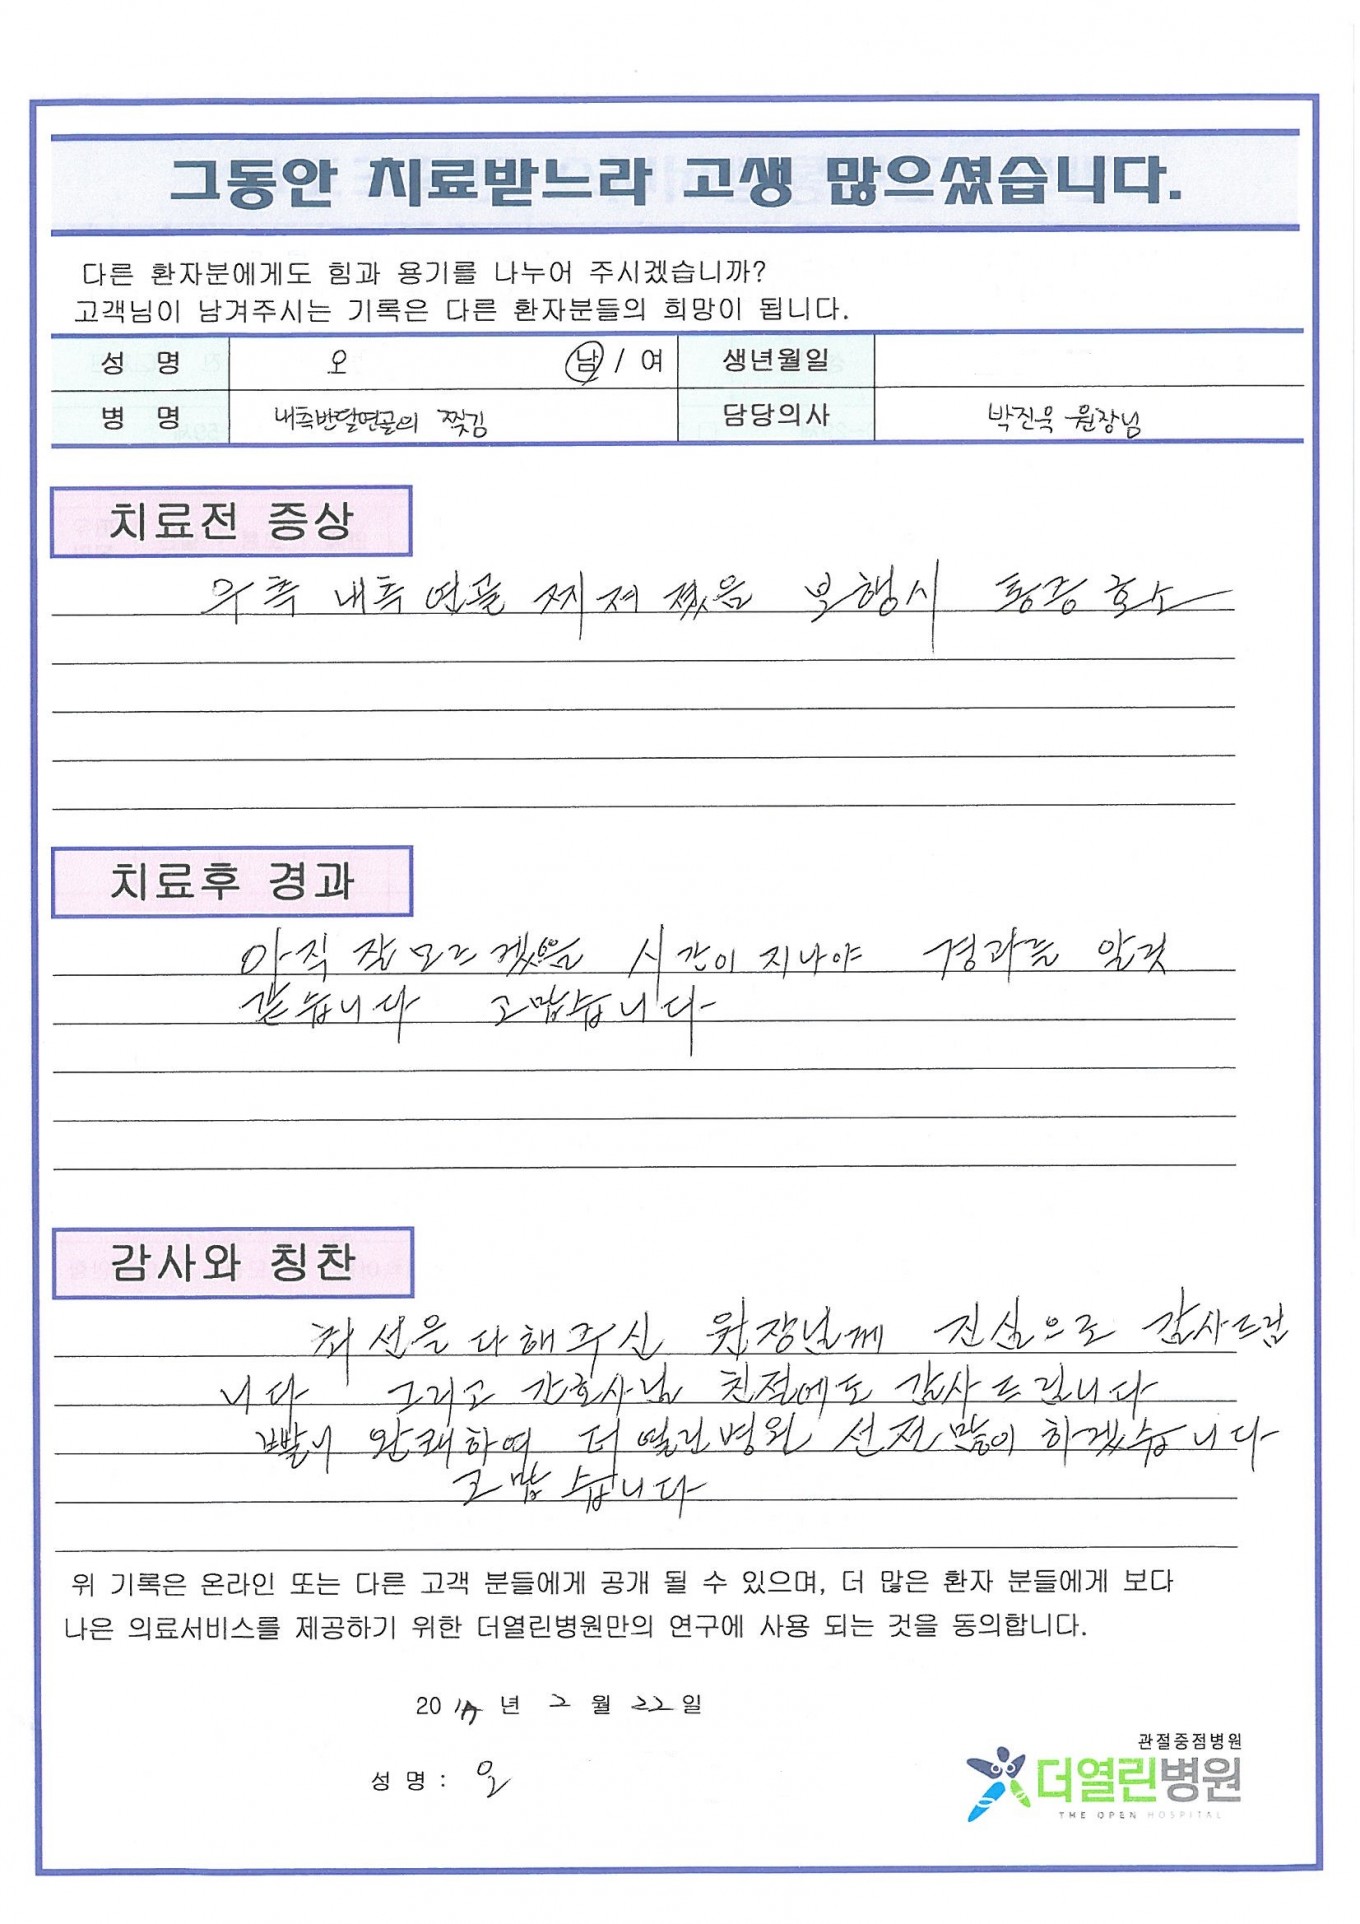 그동안 치료받느라 고생 많으셨습니다.
다른 환자분에게도 힘과 용기를 나누어 주시겠습니까?
고객님이 남겨주시는 기록은 다른 환자분들의 희망이 됩니다.
성 명 오 남 / 여 생년월일
병 명 내측반달연골의 찢김 담당의사 박진욱 원장님
치료전 증상
우측 내측 연골 찌져 졌음 보행시 통증 호소
치료후 경과
아직 잘 모르겠음 시간이 지나야 경과를 알것
같습니다 고맙습니다
감사와 칭찬
최선을 다해주신 원장님께 진심으로 감사드림
니다 그리고 간호사님 친절에도 감사드립니다
빨리 완쾌하여 더열린병원 선전 많이 하겠습니다
고맙습니다
위 기록은 온라인 또는 다른 고객 분들에게 공개 될 수 있으며, 더 많은 환자 분들에게 보다
나은 의료서비스를 제공하기 위한 더열린병원만의 연구에 사용 되는 것을 동의합니다.
20 년 2 월 22 일
성 명 : 오
관절중점병원
더열린병원
THE OPEN HOSPITAL